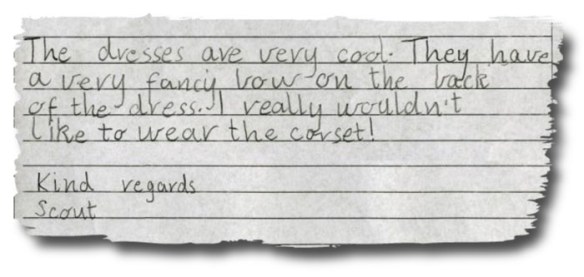 The dresses are very cool. They have
a very fancy bow on the back
of the dress. I really wouldn't
like to wear the corset!
Kind regards
Scout